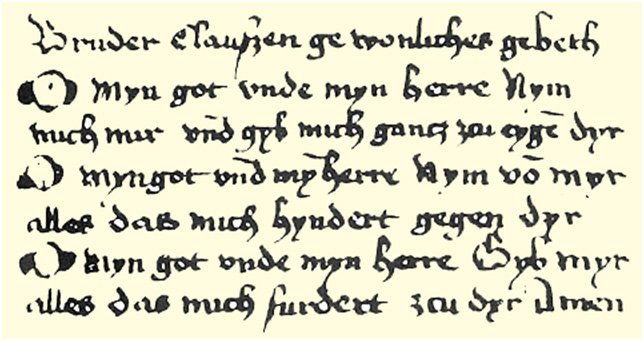 Bruder Clauszen gewonliches gebeth
O Myn got vnde myn herre Nym
mich mir vn̄d gyb mich gancz zcu eygē dyr
O myn got vn̄d mȳ herre Nym vō myr
alles das mich hyndert gegen dyr
O Myn got vnde myn herre Gyb myr
alles das mich furdert zcu dyr Amen